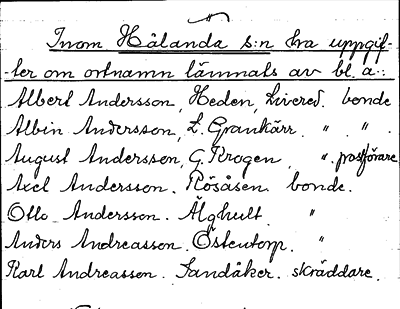 Inom Hålanda s:n ha uppgif-
ter om ortnamn lämnats av bl. a.:
Albert Andersson, Heden, Livered. bonde
Albin Andersson, L. Grankärr. " . " .
August Andersson, G. Krogen, " . postförare
Axel Andersson. Rösåsen. bonde.
Otto Andersson. Älghult. "
Anders Andreasson. Östentorp. "
Karl Andreassen. Sandåker. skräddare.